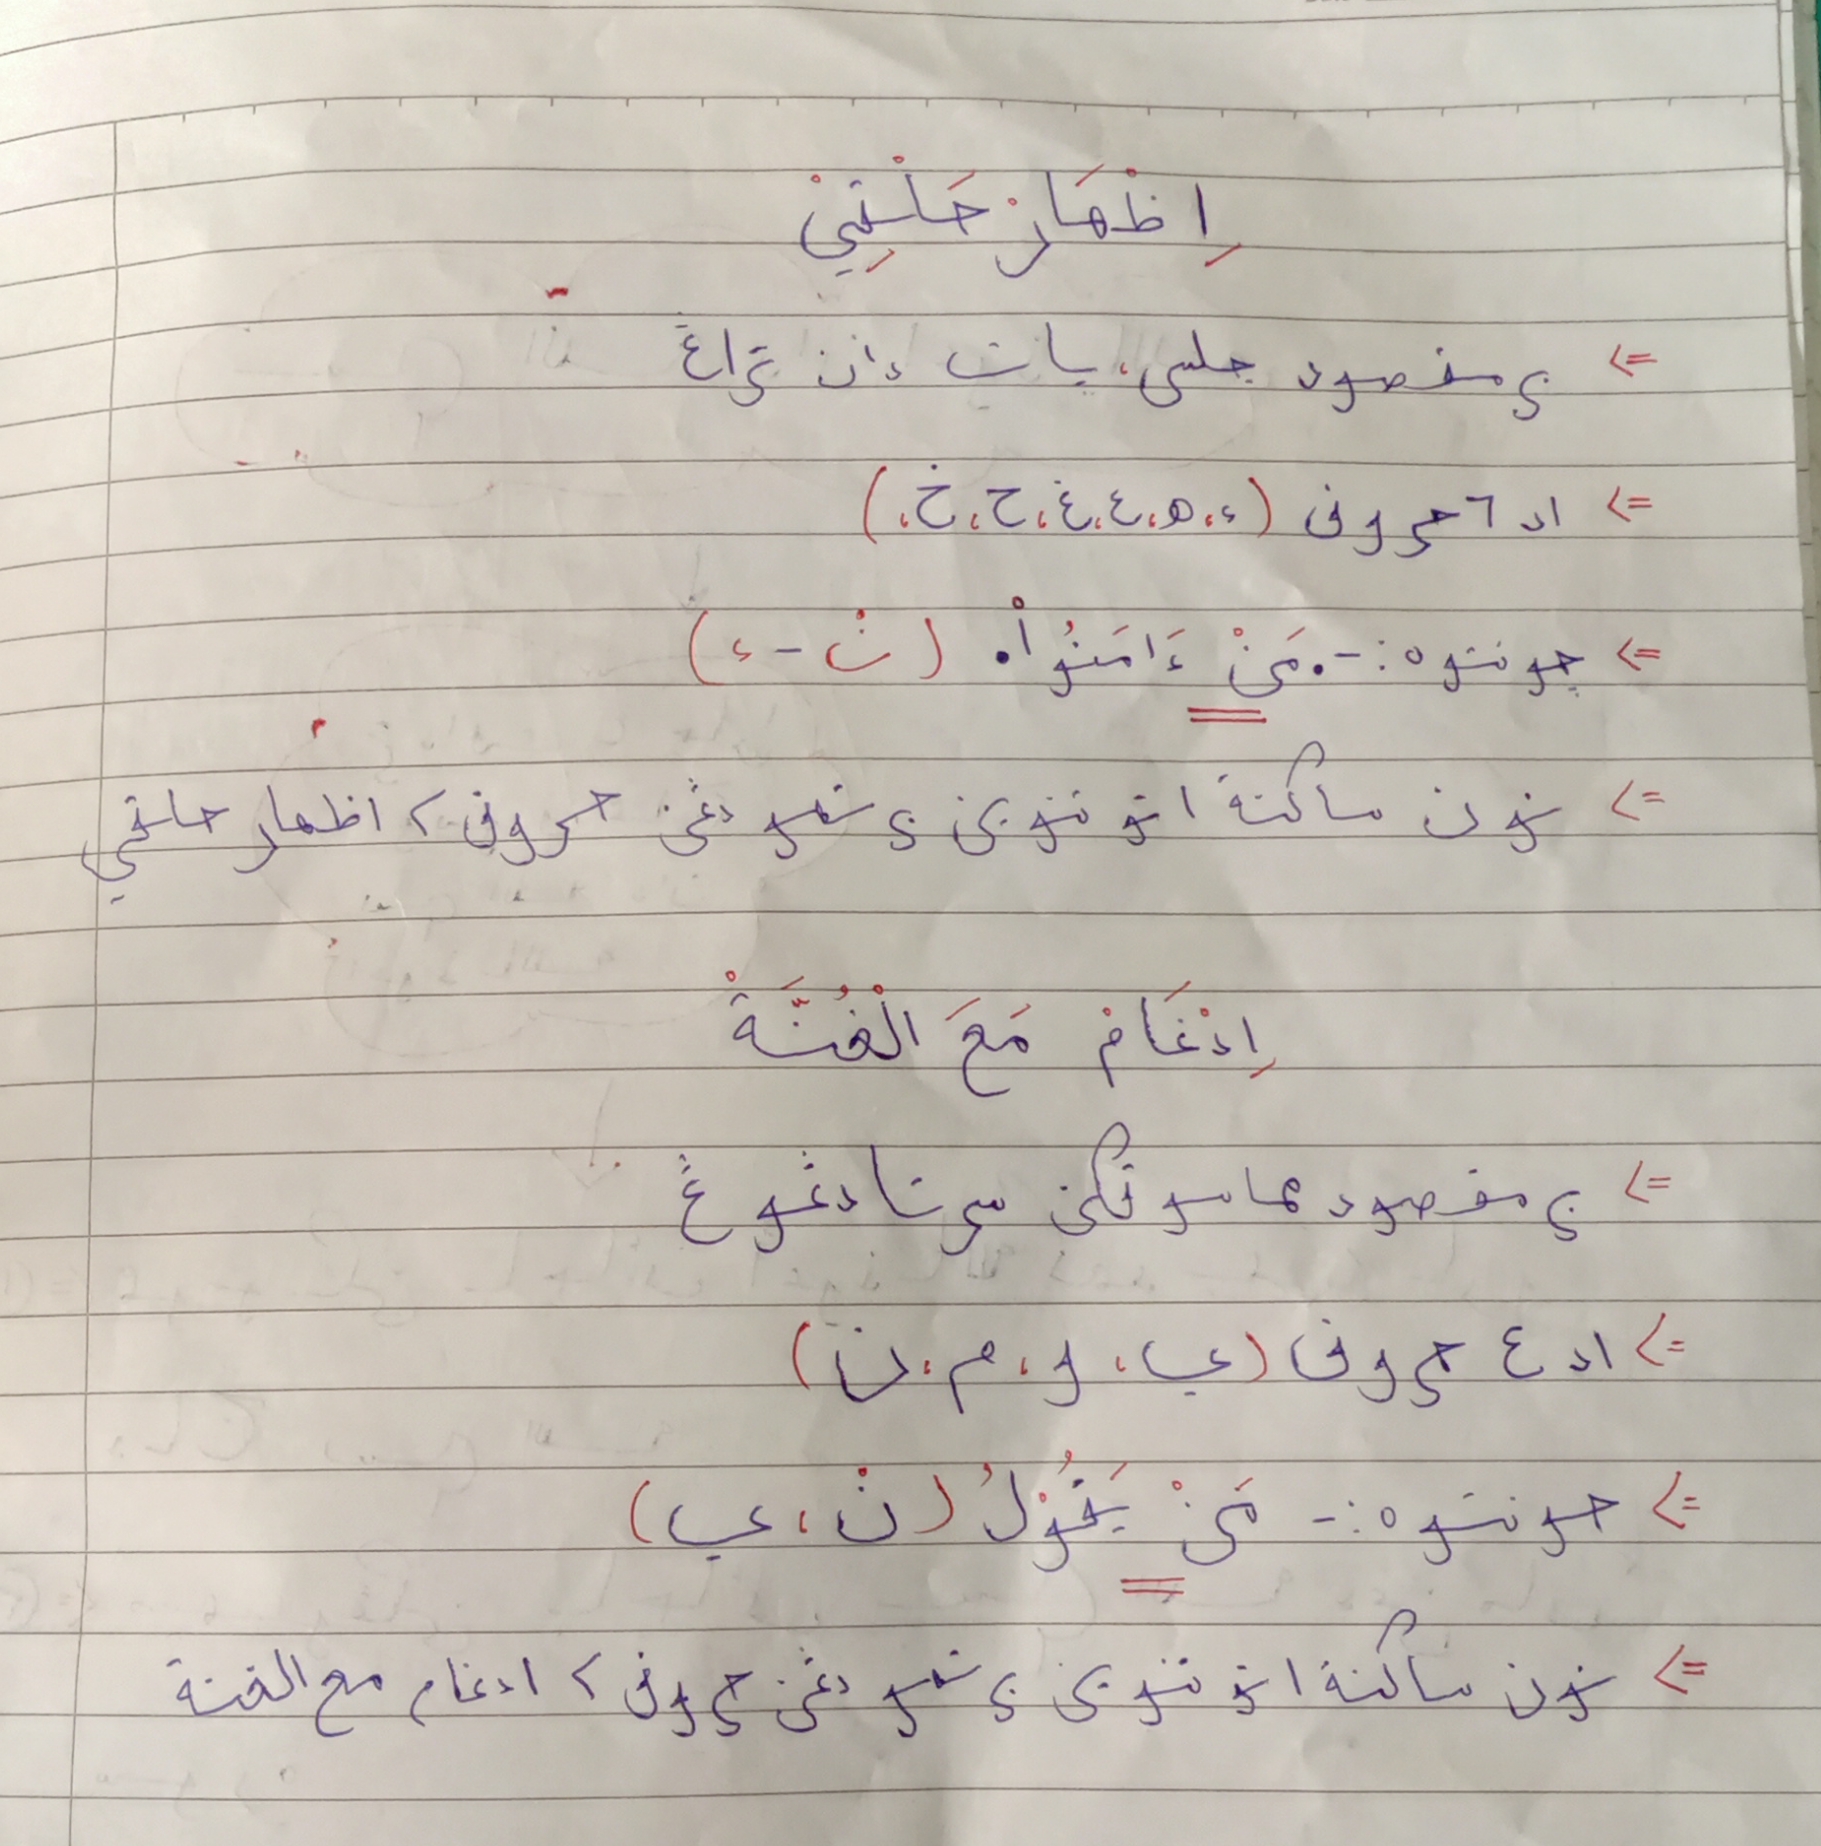 اِظْهَارْ حَلْقِيْ
=> برمقصود جلس، ڽات دان تراڠ
=> اد ٦ حروف (ء، ه، ع، غ، ح، خ،)
=> چونتوه :- . مَنْ ءَامَنُواْ . (نْ - ء)
=> نون ساكنة اتو تنوين برتمو دڠن حروف٢ اظهار حلقي
اِدْغَامْ مَعَ الْغُنَّةْ
=> برمقصود مماسوقكن سرتا دڠوڠ
=> اد ٤ حروف (ي، و، م، ن)
=> حونتوه :- مَنْ يَقُوْلُ (نْ، ي)
=> نون ساكنة اتو تنوين برتمو دڠن حروف٢ ادغام مع الغنة